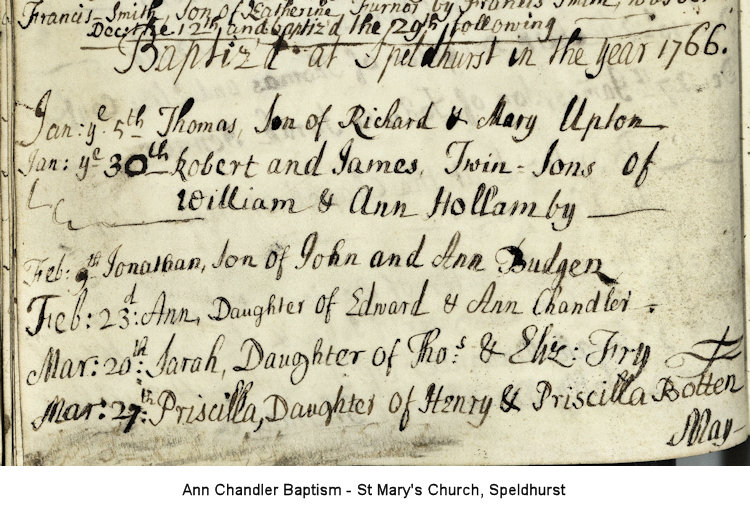 Francis Smith, Son of Katherine Turner by Francis Smith, was
Decr. the 12th, and baptiz'd the 29th following
Baptiz'd at Speldhurst in the year 1766.
Jan: ye 5th Thomas, Son of Richard & Mary Upton
Jan: ye 30th Robert and James, Twin-Sons of
William & Ann Hollamby
Feb: 9th Jonathan, Son of John and Ann Budgen
Feb: 23d: Ann, Daughter of Edward & Ann Chandler.
Mar: 20th: Sarah, Daughter of Tho:s & Eliz: Fry
Mar: 27th: Priscilla, Daughter of Henry & Priscilla Botten
May
Ann Chandler Baptism - St Mary's Church, Speldhurst